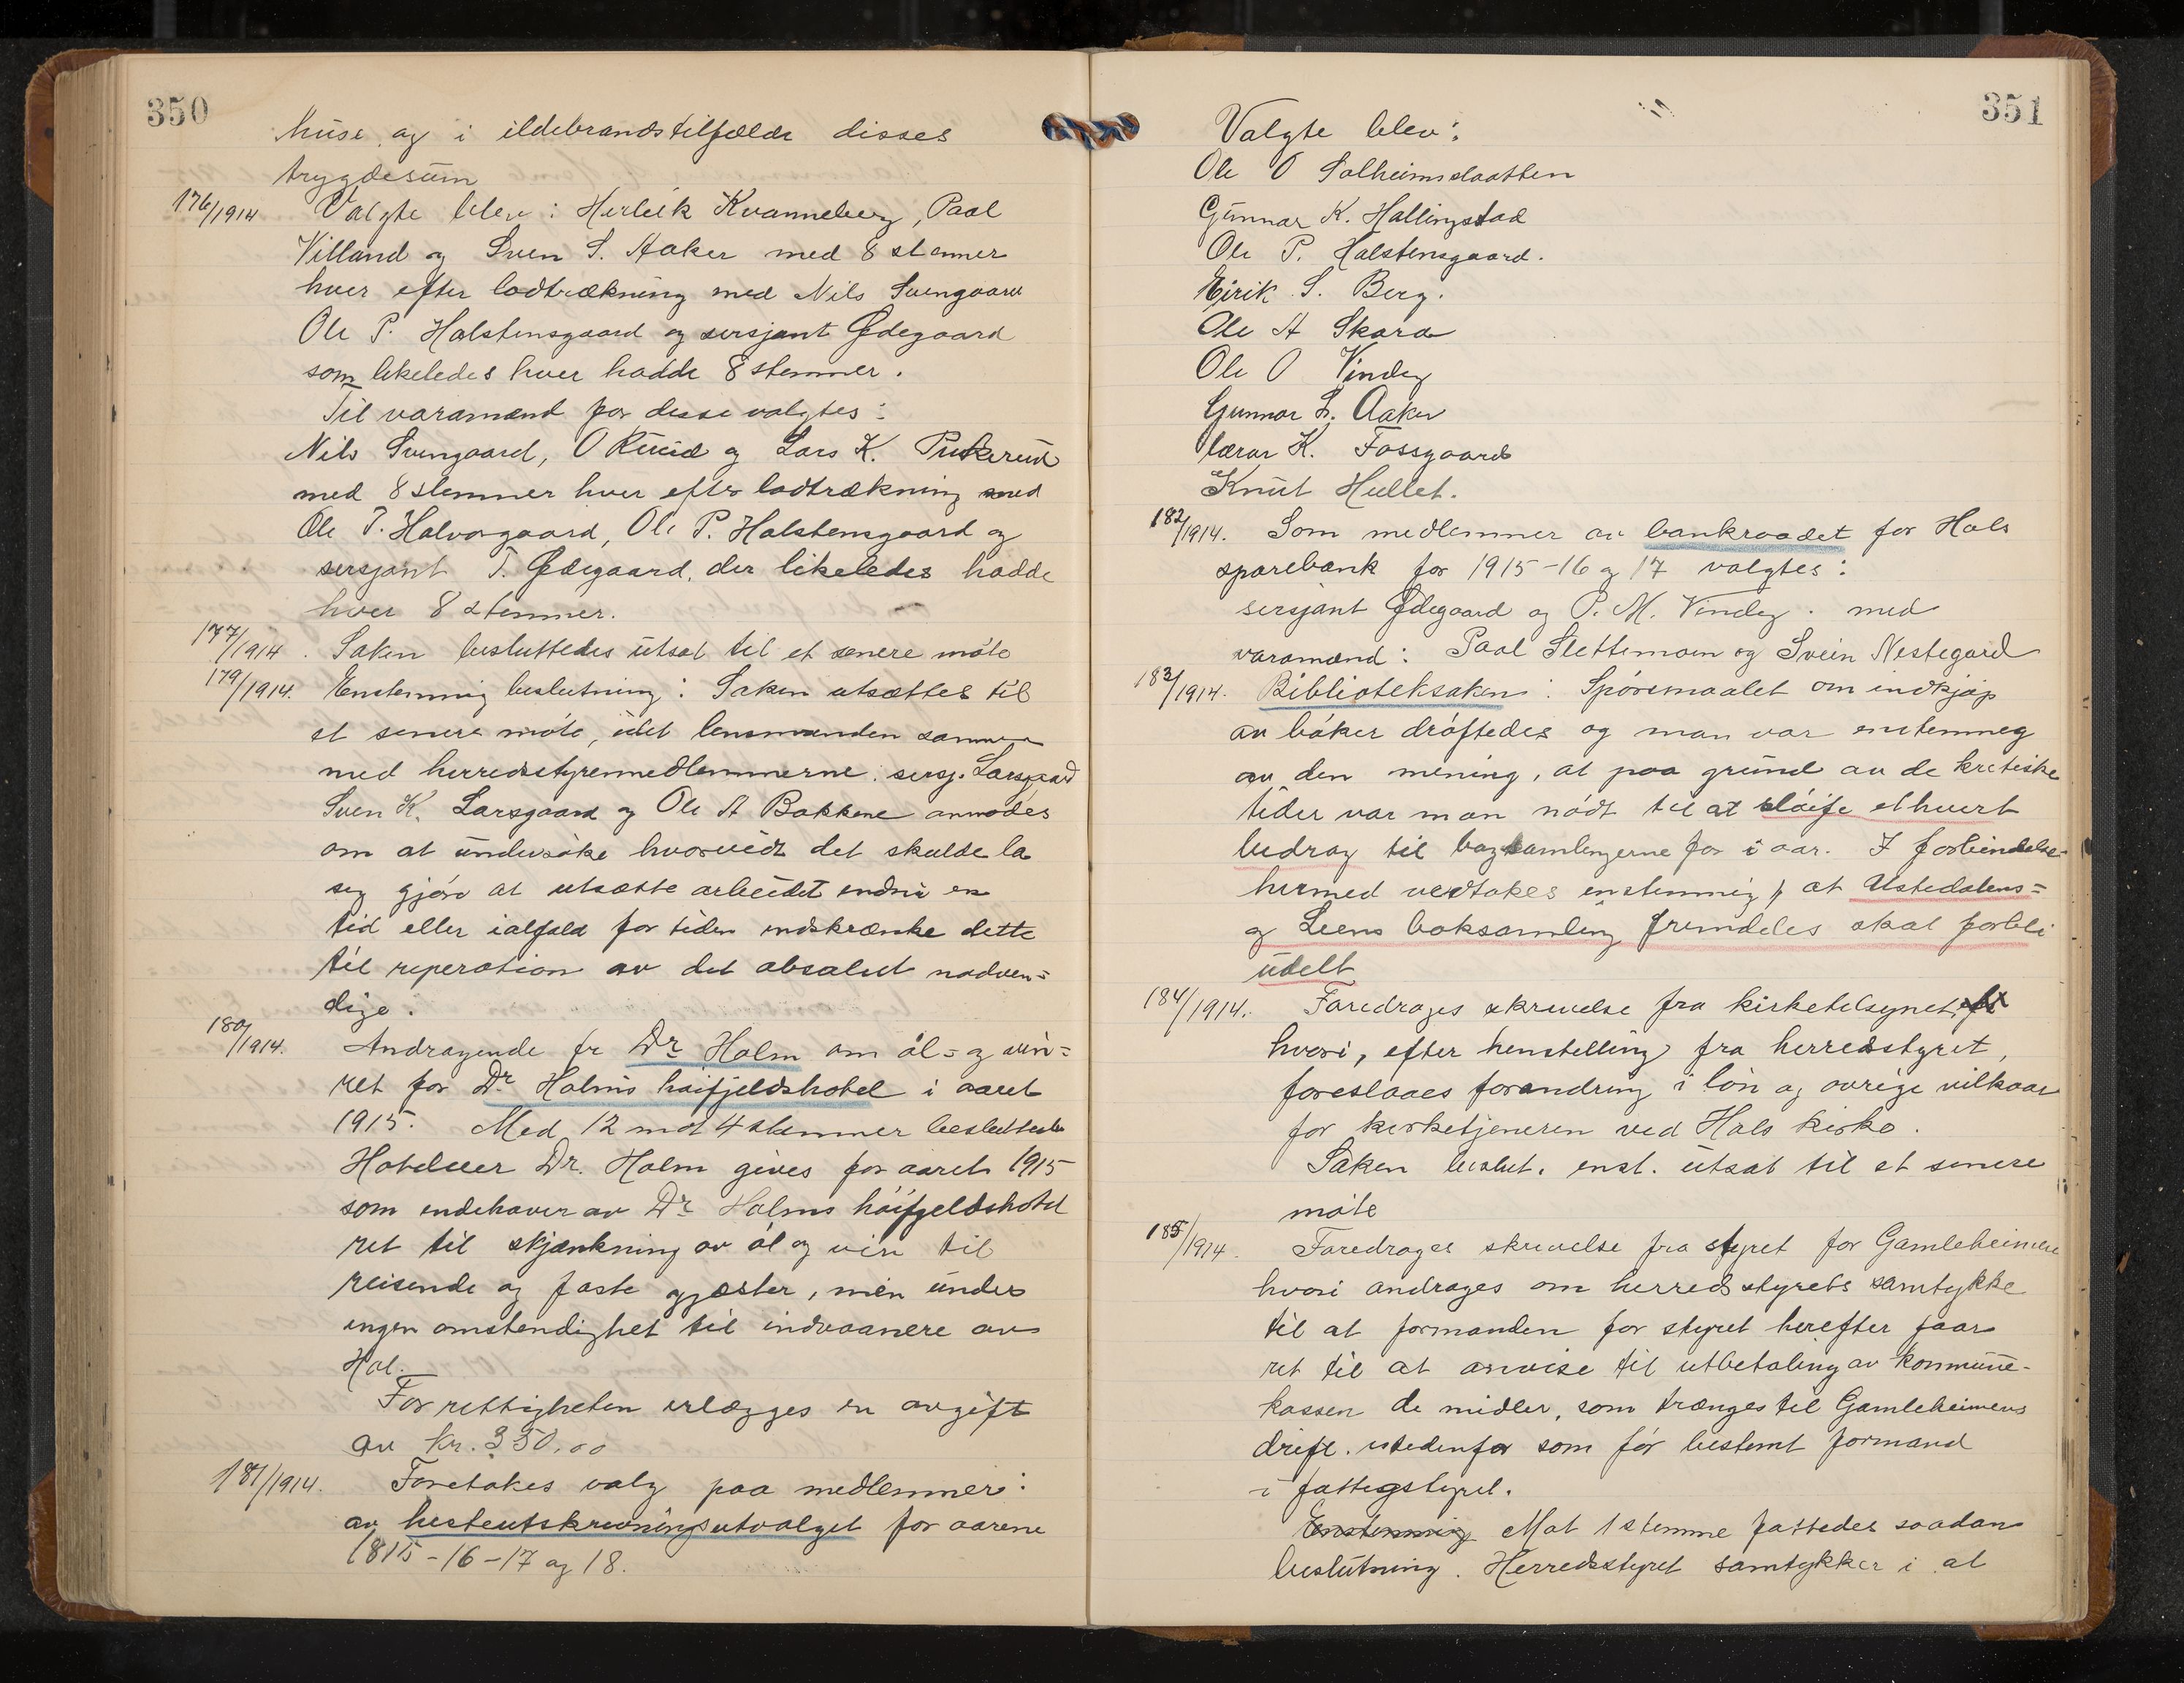 350
huse og i ildebrandstilfælde disses
trygdesum
176/1914 Valgte blev: Herleik Kvanneberg, Paal
Villand og Sven S. Aaker med 8 stemmer
hver efter lodtrækning med Nils Svengaard
Ole P. Halstensgaard og sersjant Ødegaard
som likeledes hver hadde 8 stemmer.
Til varamænd for disse valgtes:
Nils Svengaard, O Ruud og Lars K. Pukerud
med 8 stemmer hver efter lodtrækning med
Ole T. Halvorgaard, Ole P. Halstensgaard og
sersjant T. Ødegaard, der likeledes hadde
hver 8 stemmer.
177/1914. Saken besluttedes utsat til et senere møte
179/1914. Enstemmig beslutning: Saken utsættes til
et senere møte, idet lensmanden sammen
med herredsstyremedlemmerne: sersj. Larsgaard
Sven K. Larsgaard og Ole A Bakkene anmodes
om at undersøke hvorvidt det skulde la
sig gjøre at utsætte arbeidet endnu en
tid eller ialfald for tiden indskrænke dette
til reperation av det absolut nødven=
dige.
180/1914. Andragende fr Dr Holm om øl= og vin=
ret for Dr Holms høifjeldshotel i aaret
1915. Med 12 mot 4 stemmer besluttedes
Hoteleier Dr. Holm gives for aaret 1915
som indehaver av Dr Holms høifjeldshotel
ret til skjænkning av øl og vin til
reisende og faste gjæster, men under
ingen omstendighet til indvaanere av
Hol.
For rettigheten erlægges en avgift
av kr. 350.00
181/1914. Foretokes valg paa medlemmer:
av hesteutskrivningsutvalget for aarene
1815-16-17 og 18.
351
Valgte blev:
Ole O Solheimslaatten
Gunnar K. Hallingstad
Ole P. Halstensgaard.
Eirik S. Berg.
Ole A Skaro
Ole O Vindeg
Gunnar L. Aaker
lærar K. Fossgaard
Knut Hullet.
182/1914. Som medlemmer av bankraadet for Hols
sparebank for 1915-16 og 17 valgtes:
sersjant Ødegaard og P. M. Vindeg. med
varamænd: Paal Slettemoen og Svein Nestegard
183/1914. Biblioteksaken: Spørsmaalet om indkjøp
av bøker drøftedes og man var enstemmeg
av den mening, at paa grund av de kretiske
tider var man nødt til at sløife ethvert
bedrag til bogsamlingerne for i aar. I forbindelse
hermed vedtokes enstemmig, at Ustedalens=
og Leens boksamling fremdeles skal forbli
udelt
184/1914. Foredroges skrivelse fra kirketilsynet,
hvori, efter henstelling fra herredsstyret,
foreslaaes forandring i løn og øvrige vilkaar
for kirketjeneren ved Hols kirke.
Saken beslut. enst. utsat til et senere
møte
185/1914. Foredroges skrivelse fra styret for Gamleheimen
hvori andrages om herredsstyrets samtykke
til at formanden for styret herefter faar
ret til at anvise til utbetaling av kommune-
kassen de midler, som trænges til Gamleheimens
drift. istedenfor som før bestemt formand
i fattigstyret.
Enstemmig Mot 1 stemme fattedes saadan
beslutning. Herredsstyret samtykker i at